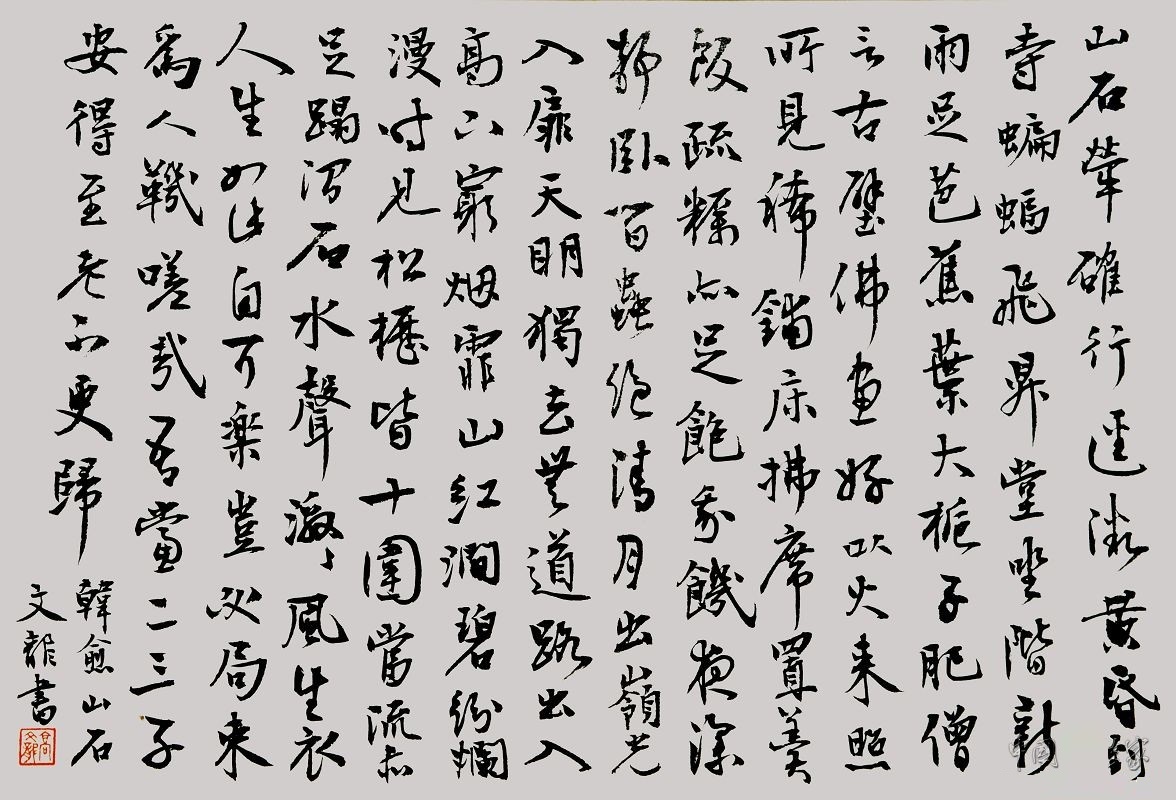 山石犖確行逕微黄昏到
寺蝙蝠飛昇堂坐階新
雨足芭蕉葉大梔子肥僧
言古壁佛画好以火来照
所見稀鋪床拂席置羹
飯疏糲亦足飽我饑夜深
靜臥百蟲絶清月出嶺光
入扉天明獨去無道路出入
高下窮烟霏山紅澗碧紛爛
漫时見松櫪皆十圍當流赤
足蹋澗石水聲激々風生衣
人生如此自可樂豈必局束
為人鞿嗟哉吾當二三子
安得至老不更歸 韓愈山石
文龍書